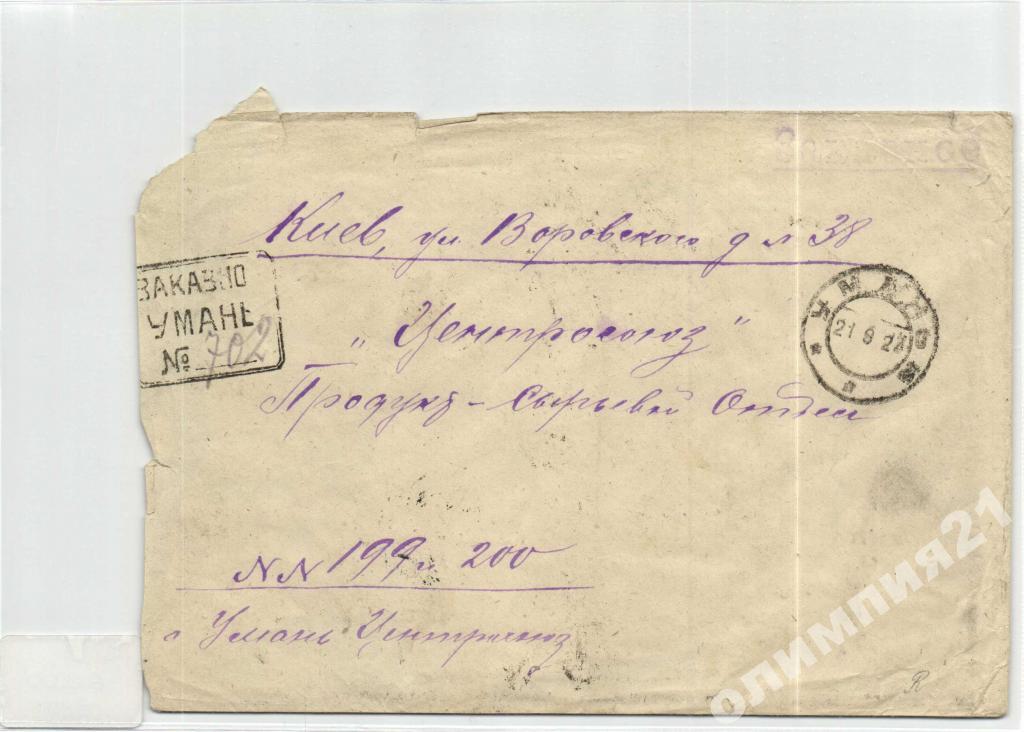 Киев, ул. Воровского д № 38
ЗАКАЗНО
УМАНЬ
№ 702
„Центросоюз"
21 8 22
Продукт-Сырьевой Отдел
NN 199 и 200
г Умань Центросоюз
R
олимпия21